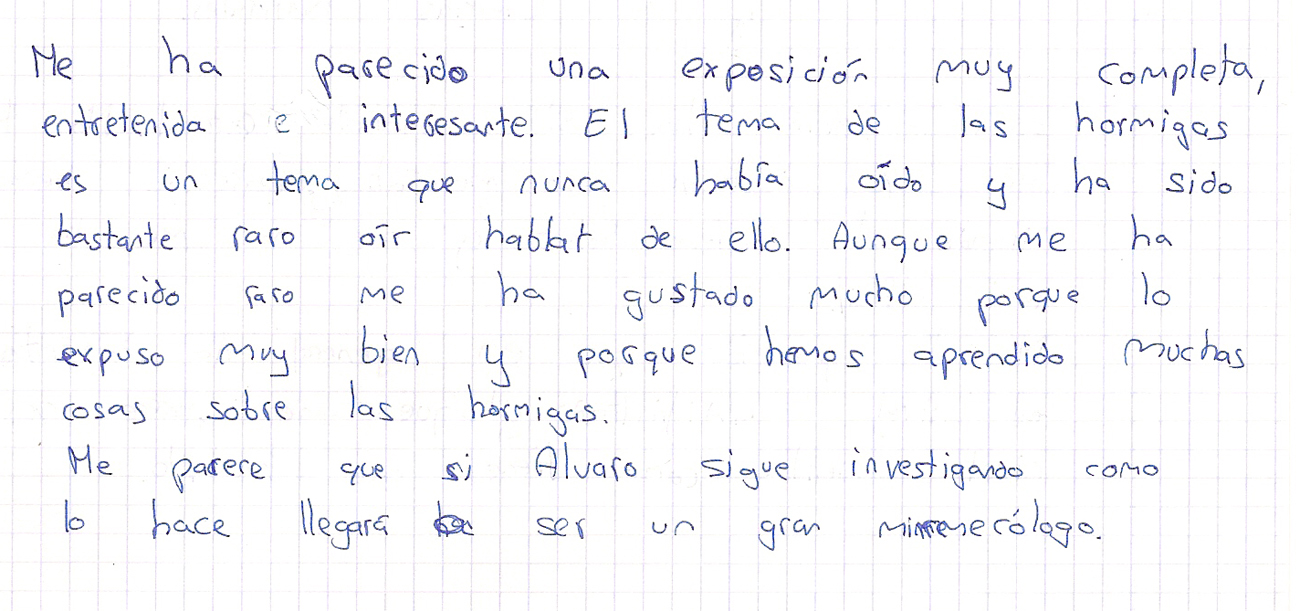 Me ha parecido una exposición muy completa,
entretenida e interesante. El tema de las hormigas
es un tema que nunca había oído y ha sido
bastante raro oír hablar de ello. Aunque me ha
parecido raro me ha gustado mucho porque lo
expuso muy bien y porque hemos aprendido muchas
cosas sobre las hormigas.
Me parece que si Alvaro sigue investigando como
lo hace llegará ser un gran